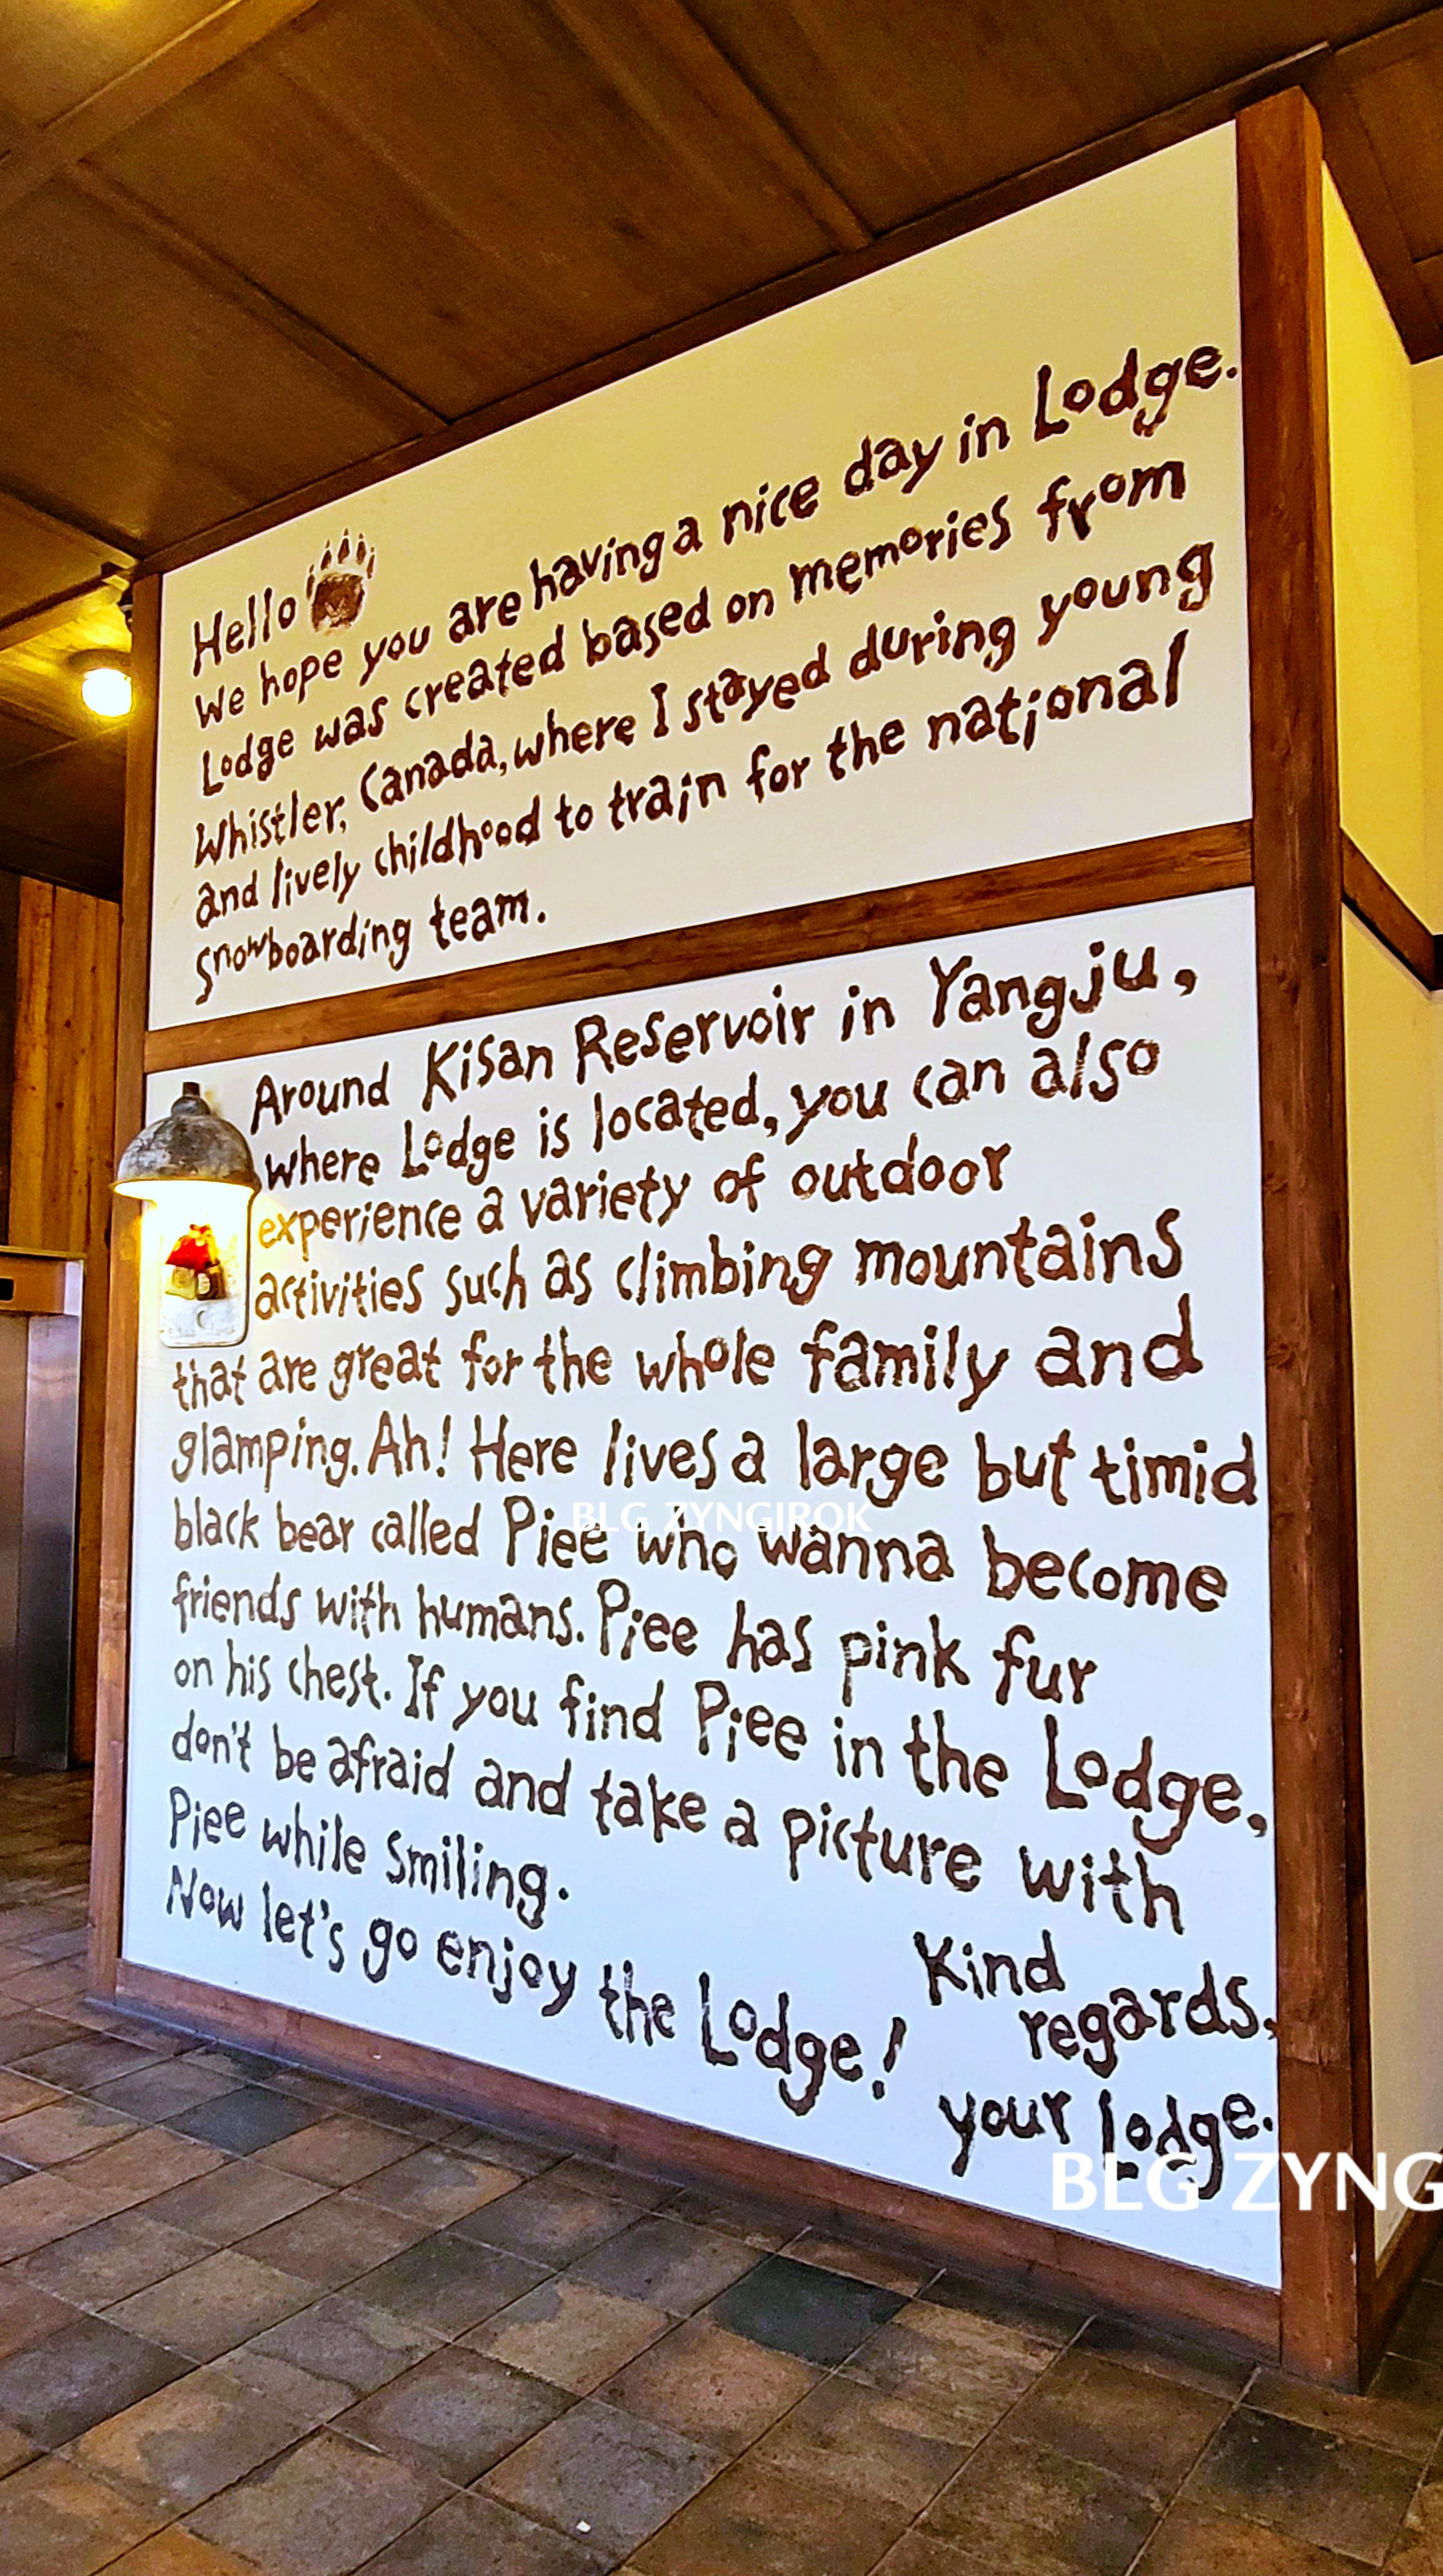 Hello
We hope you are having a nice day in Lodge.
Lodge was created based on memories from
Whistler, Canada, where I stayed during young
and lively childhood to train for the national
snowboarding team.
Around Kisan Reservoir in Yangju,
where Lodge is located, you can also
experience a variety of outdoor
activities such as climbing mountains
that are great for the whole family and
glamping. Ah! Here lives a large but timid
black bear called Piee who wanna become
friends with humans. Piee has pink fur
on his chest. If you find Piee in the Lodge,
don't be afraid and take a picture with
Piee while smiling.
Now let's go enjoy the Lodge!
Kind
regards.
your Lodge.
BLG ZYNGIROK
BLG ZYNG